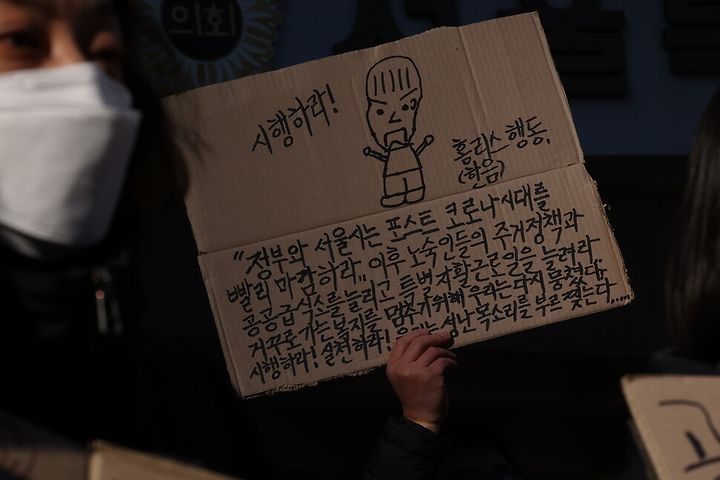 의회
시행하라!
홈리스행동,
(학음)
"정부와 서울시는 포스트 코로나시대를
빨리 마감하라" 이후 노숙인들의 주거정책과
공공급식소를 늘리고 특별자활근로일을 늘려라
거꾸로 가는 복지를 멈추기 위해 우리는 다시 뭉쳤다..
시행하라! 실천하라! 성난 목소리를 부르짖는다.....
고